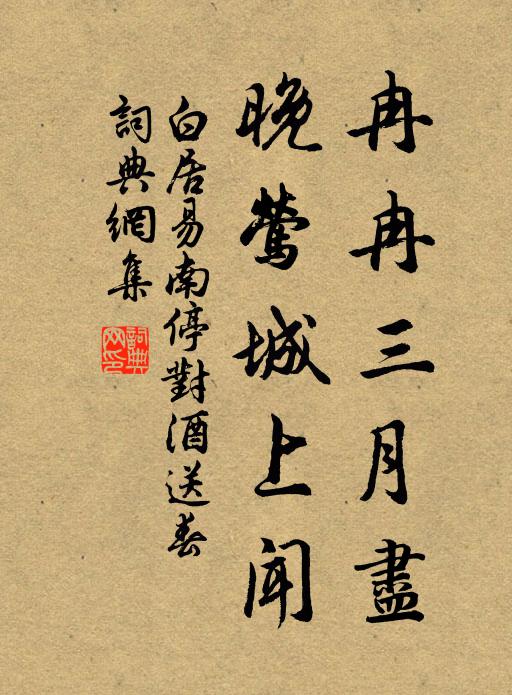 冉冉三月盡
晚鶯城上聞
白居易南停對酒送春
詞典網集
詞典
网印